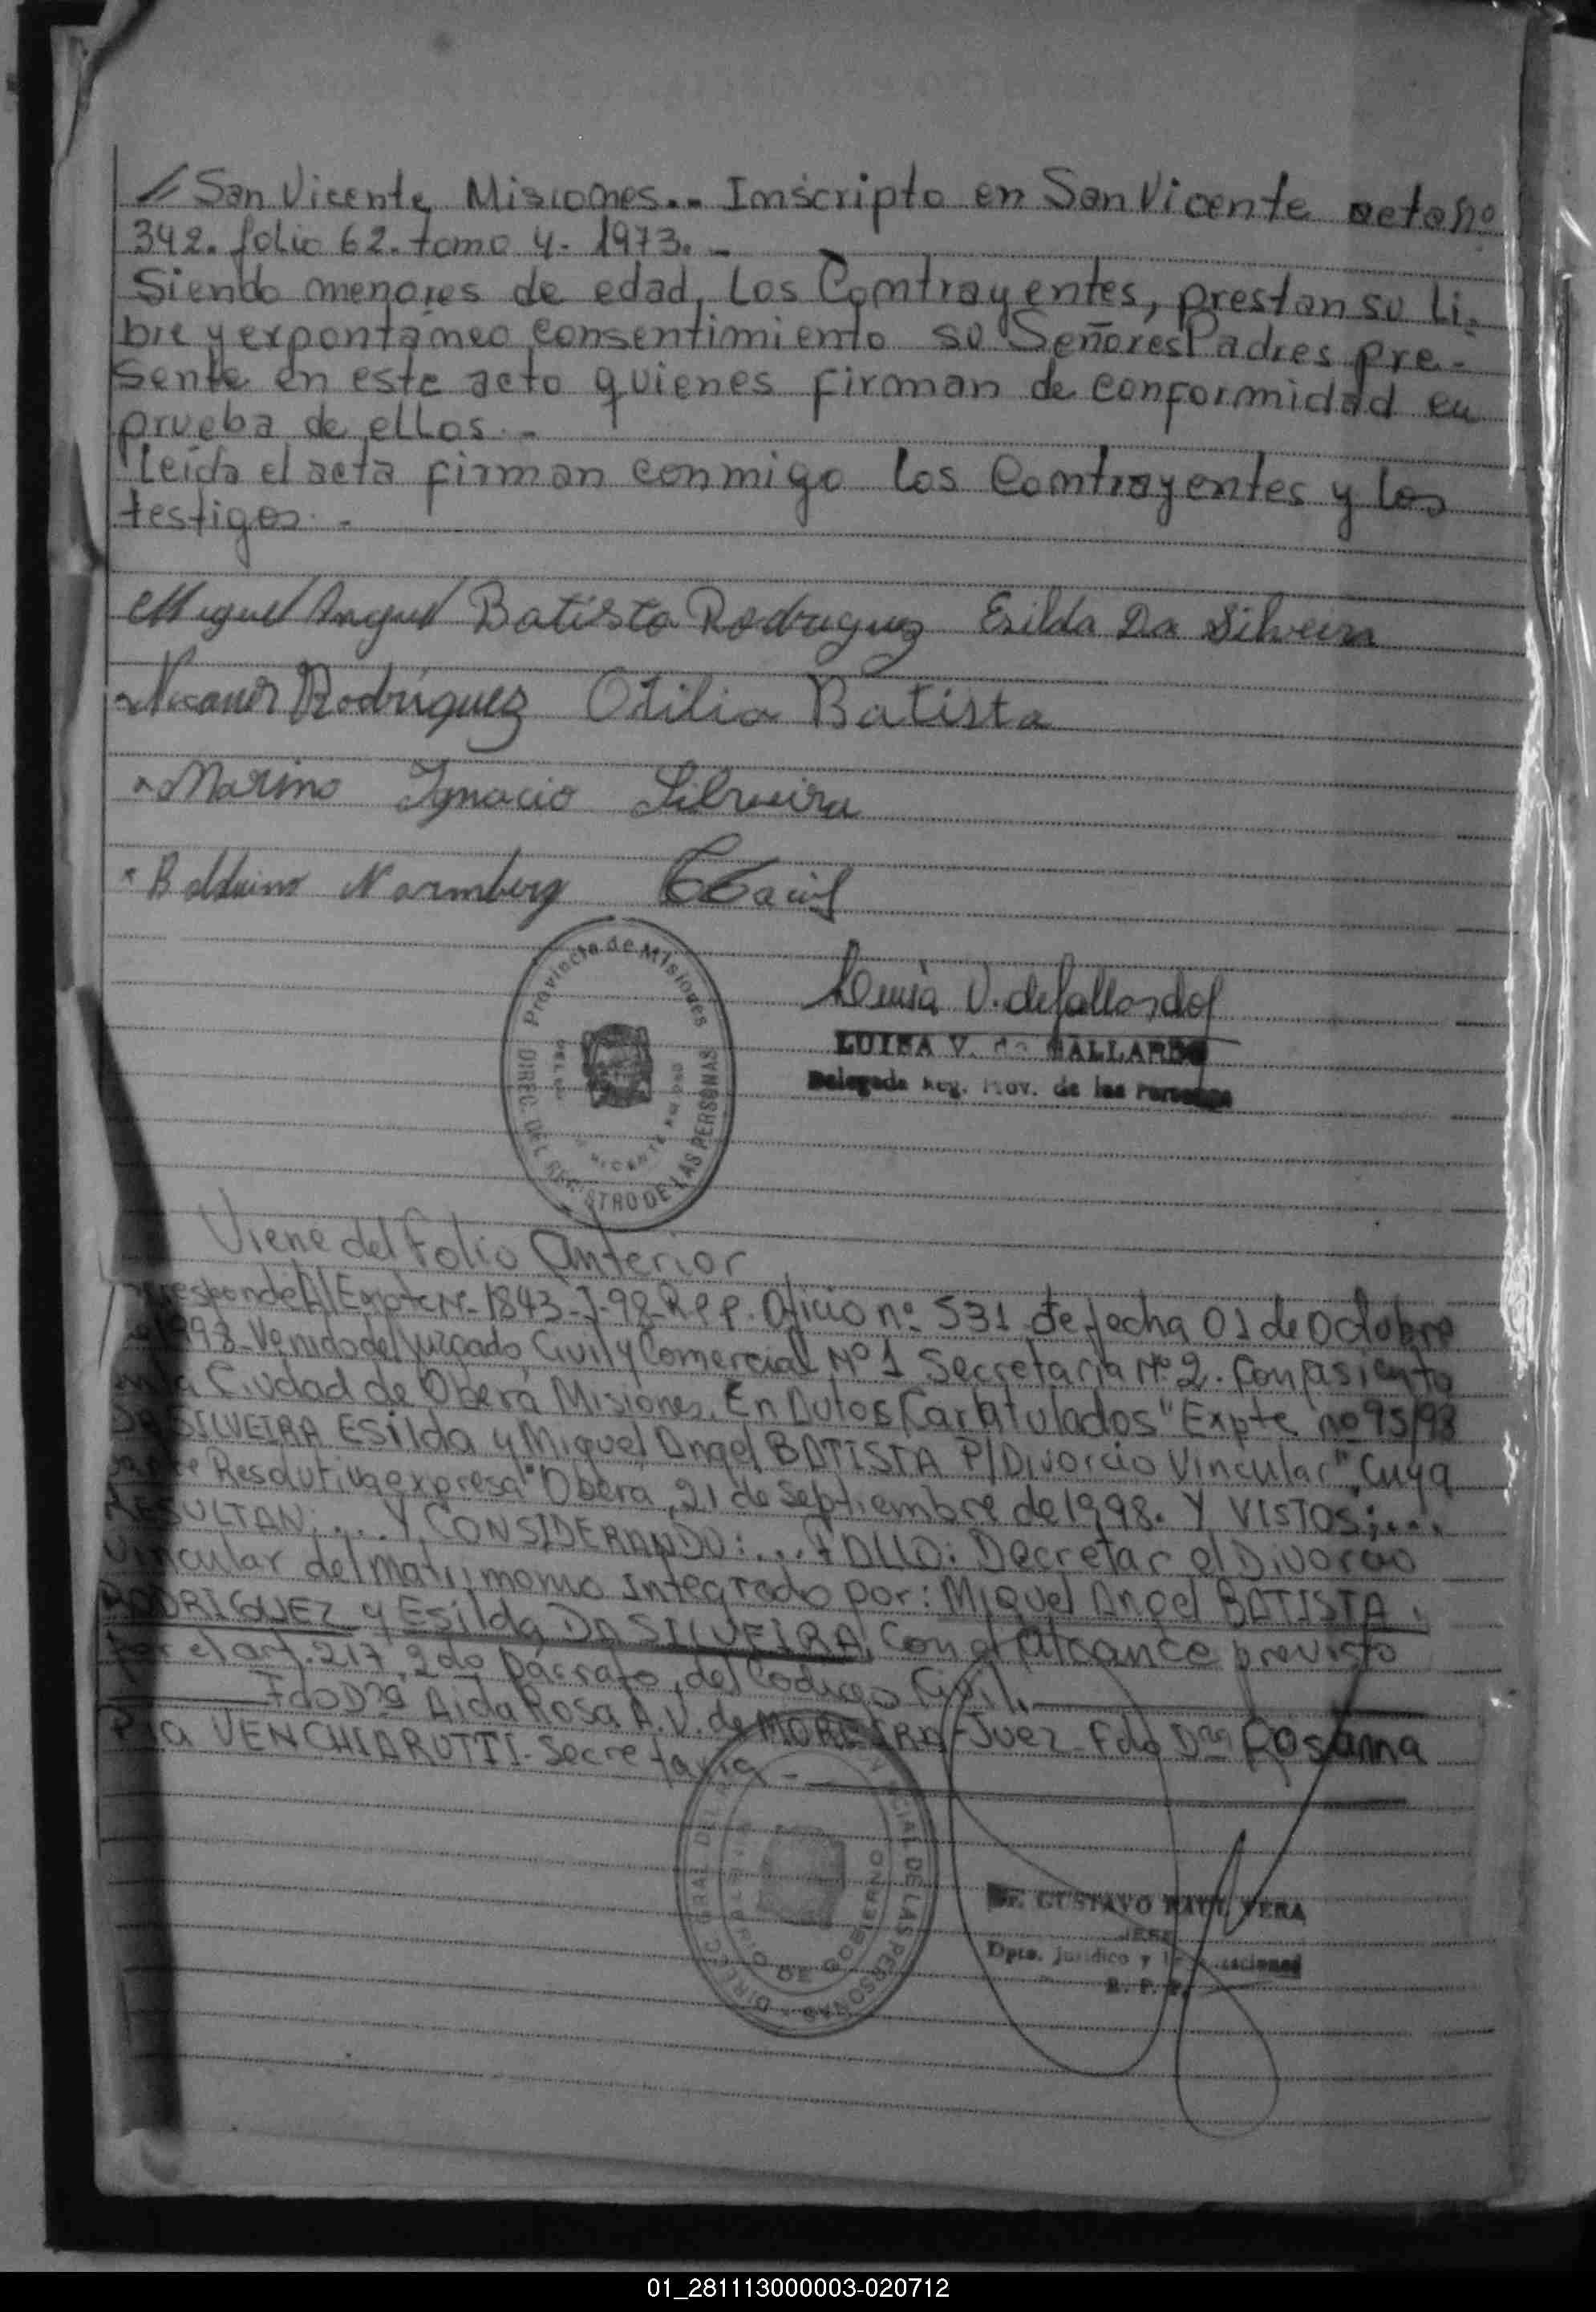 // San Vicente Misiones.- Imscripto en San Vicente acta nº
342. folio 62. tomo 4- 1973.-
Siendo menores de edad, Los Comtrayentes, prestan su Li-
bre y expontameo consentimiento su Señores Padres pre-
sente en este acto quienes firman de conformidad en
prueba de ellos.-
Leida el acta firman conmigo los Comtrayentes y los
testigos.-
Miguel Angel Batista Rodriguez Esilda Da Silveira
Nicanor Rodríguez Otilia Batista
Marino Ignacio Silveira
Balduino Normberg
Provincia de Misiones
DIREC. DEL REGISTRO DE LAS PERSONAS
Luisa V. de Gallardo
LUISA V. de GALLARDO
Delegada Reg. Prov. de las Personas
Viene del Folio Anterior
Corresponde Al Expte Nº- 1843-J-98-RPP. Oficio nº 531 de fecha 01 de Octubre
1998- Venido del Juzgado Civil y Comercial Nº 1 Secretaria Nº 2. Con Asiento
en la Ciudad de Oberá Misiones. En Autos Caratulados "Expte nº 95/93
DA SILVEIRA Esilda y Miguel Angel BATISTA P/Divorcio Vincular", Cuya
parte Resolutiva expresa "Oberá, 21 de Septiembre de 1998. Y VISTOS;...
RESULTAN:... Y CONSIDERANDO:... FALLO: Decretar el Divorcio
Vincular del Matrimonio Integrado por: Miguel Angel BATISTA
RODRIGUEZ y Esilda DA SILVEIRA, Con el alcance previsto
por el art. 217, 2do párrafo, del Codigo Civil.
Fdo Dra Aida Rosa A.V. de MOREIRA-Juez-Fdo Dra Rosanna
Pia VENCHIARUTTI- Secretaria-
DIREC. GRAL. DEL PROVINCIAL DE LAS PERSONAS
MINISTERIO DE GOBIERNO
Dr. GUSTAVO RAUL VERA
JEFE
Dpto. Jurídico y
R. P. P.
01_281113000003-020712